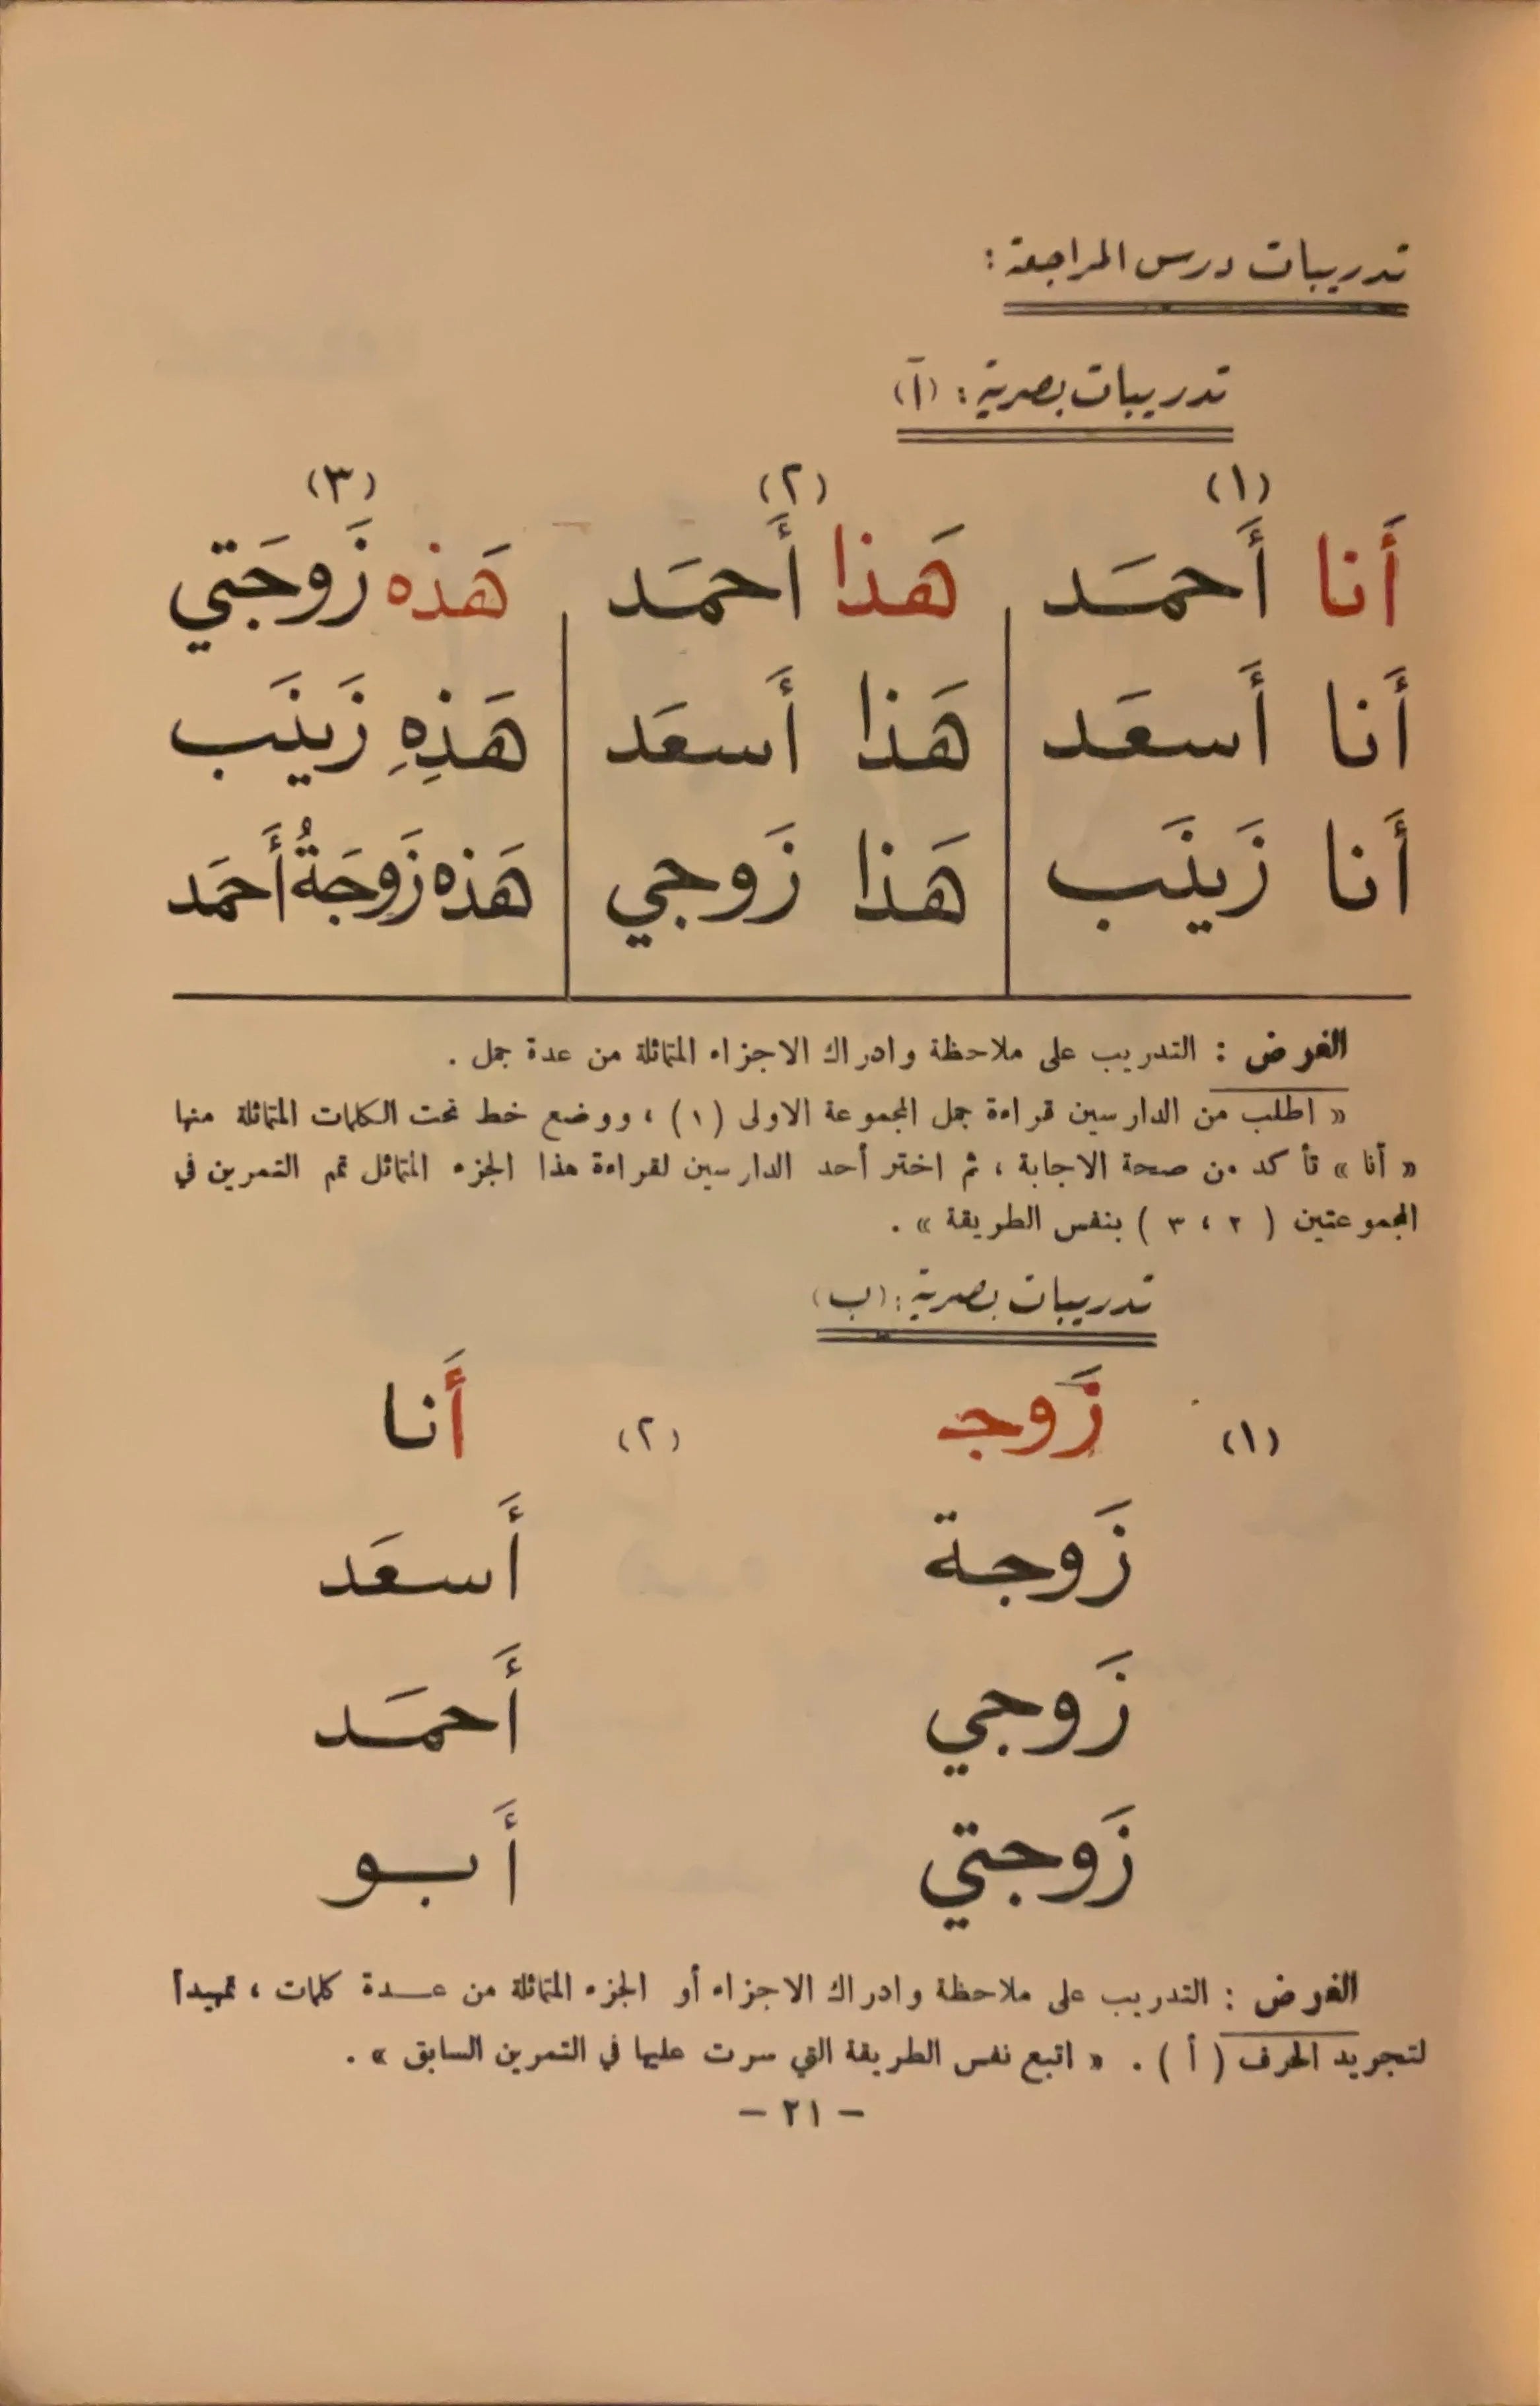 تدريبات درس المراجعة :
تدريبات بصرية : (آ)
(١) (٢) (٣)
أَنا أَحمَد هَذا أَحمَد هَذه زَوجَتي
أَنا أَسعَد هَذا أَسعَد هَذِهِ زَينَب
أَنا زَينَب هَذا زَوجي هَذه زَوجَةُ أَحمَد
الغرض : التدريب على ملاحظة وادراك الاجزاء المتماثلة من عدة جمل .
« اطلب من الدارسين قراءة جمل المجموعة الاولى (١) ، ووضع خط تحت الكلمات المتماثلة منها
« أنا » تأكد من صحة الاجابة ، ثم اختر أحد الدارسين لقراءة هذا الجزء المتماثل تمم التمرين في
المجموعتين ( ٢ ، ٣ ) بنفس الطريقة » .
تدريبات بصرية : (ب)
(١) زَوجـ (٢) أَنا
زَوجة أَسعَد
زَوجي أَحمَد
زَوجتي أَبو
الغرض : التدريب على ملاحظة وادراك الاجزاء أو الجزء المتماثلة من عـدة كلمات ، تمهيداً
لتجريد الحرف ( أ ) . « اتبع نفس الطريقة التي سرت عليها في التمرين السابق » .
- ٢١ -